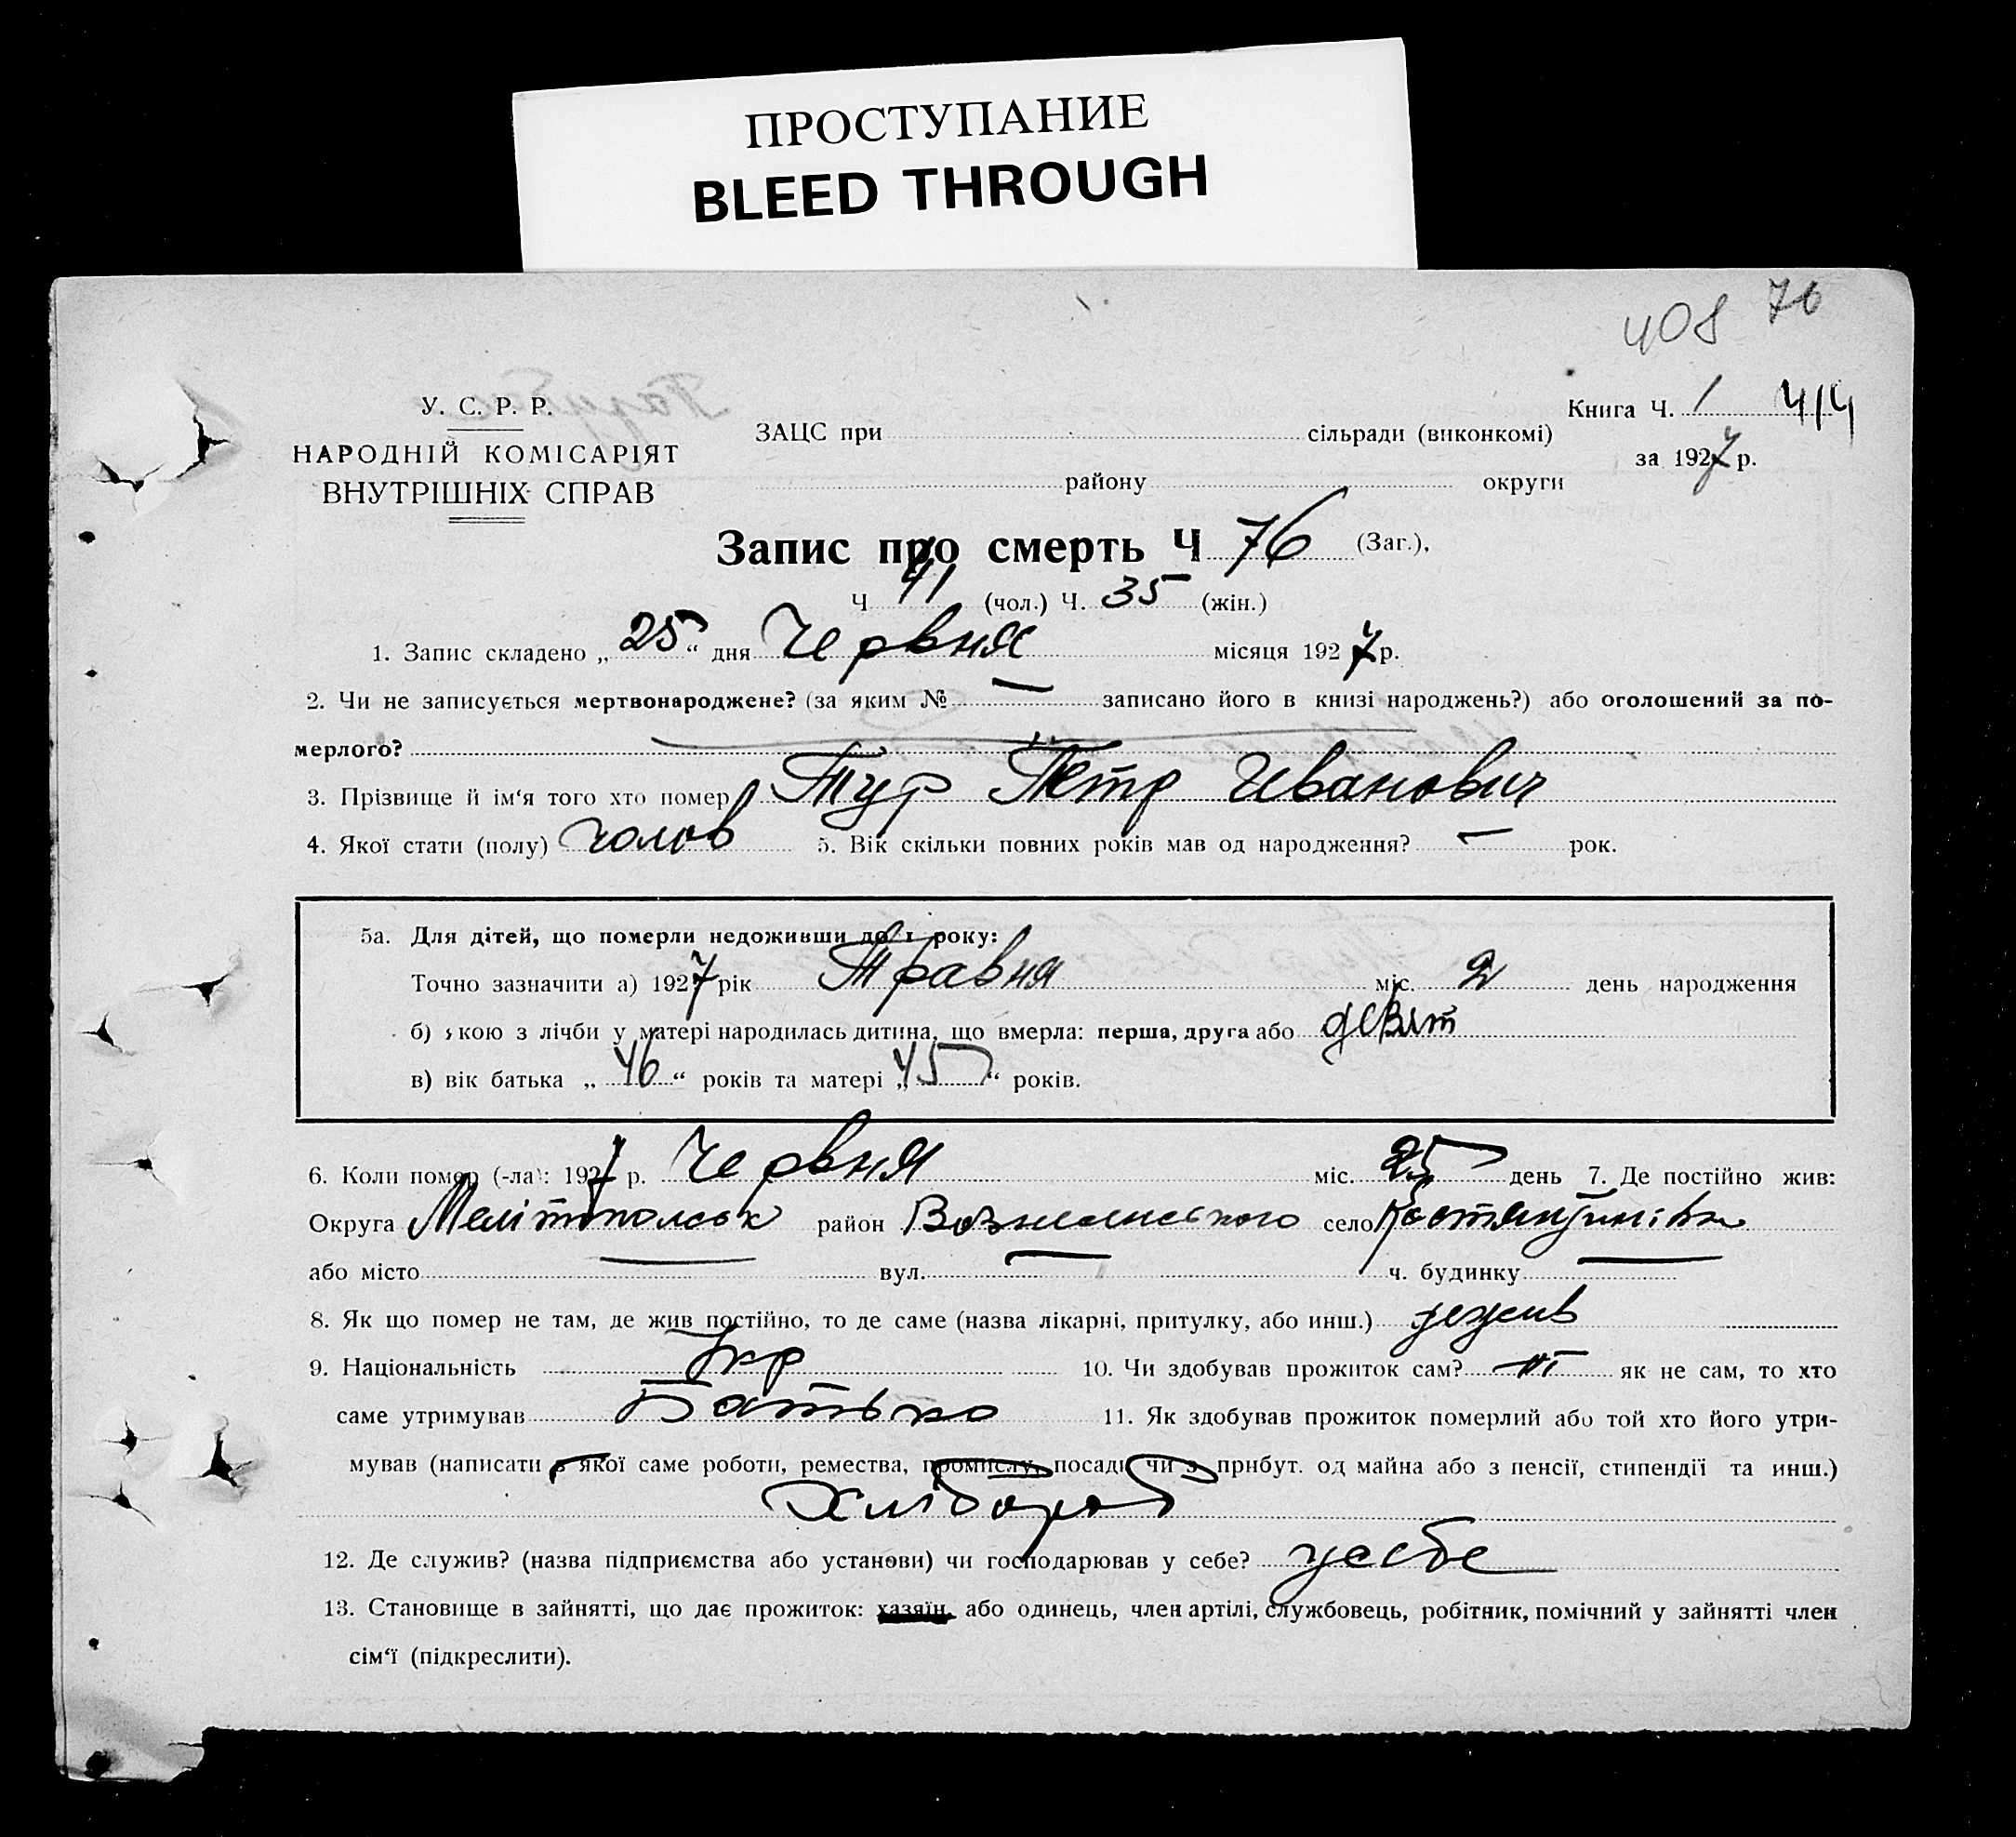 ПРОСТУПАНИЕ
BLEED THROUGH
408 76
У. С. Р. Р.
НАРОДНІЙ КОМІСАРІЯТ
ВНУТРІШНІХ СПРАВ
ЗАЦС при сільради (виконкомі)
району округи
Книга Ч. 1 414
за 1927 р.
Запис про смерть Ч 76 (Заг.),
Ч 41 (чол.) Ч. 35 (жін.)
1. Запис складено „25“ дня Червня місяця 1927 р.
2. Чи не записується мертвонароджене? (за яким № — записано його в книзі народжень?) або оголошений за по-
мерлого?
3. Прізвище й ім‘я того хто помер Тур Петр Иванович
4. Якої стати (полу) чолов 5. Вік скільки повних років мав од народження? — рок.
5а. Для дітей, що померли недоживши до 1 року:
Точно зазначити а) 1927 рік Травня міс. 2 день народження
б) якою з лічби у матері народилась дитина, що вмерла: перша, друга або девят
в) вік батька „46“ років та матері „45“ років.
6. Коли помер (-ла): 1927 р. Червня міс. 25 день 7. Де постійно жив:
Округа Мелітопольськ район Вознесенського село Костянтинівка
або місто — вул. — ч. будинку —
8. Як що помер не там, де жив постійно, то де саме (назва лікарні, притулку, або инш.) де жив
9. Національність Укр 10. Чи здобував прожиток сам? ні як не сам, то хто
саме утримував Батько 11. Як здобував прожиток померлий або той хто його утри-
мував (написати з якої саме роботи, ремества, промислу, посади чи з прибут. од майна або з пенсії, стипендії та инш.)
Хлібороб
12. Де служив? (назва підприємства або установи) чи господарював у себе? у себе
13. Становище в зайнятті, що дає прожиток: хазяїн, або одинець, член артілі, службовець, робітник, помічний у зайнятті член
сім‘ї (підкреслити).